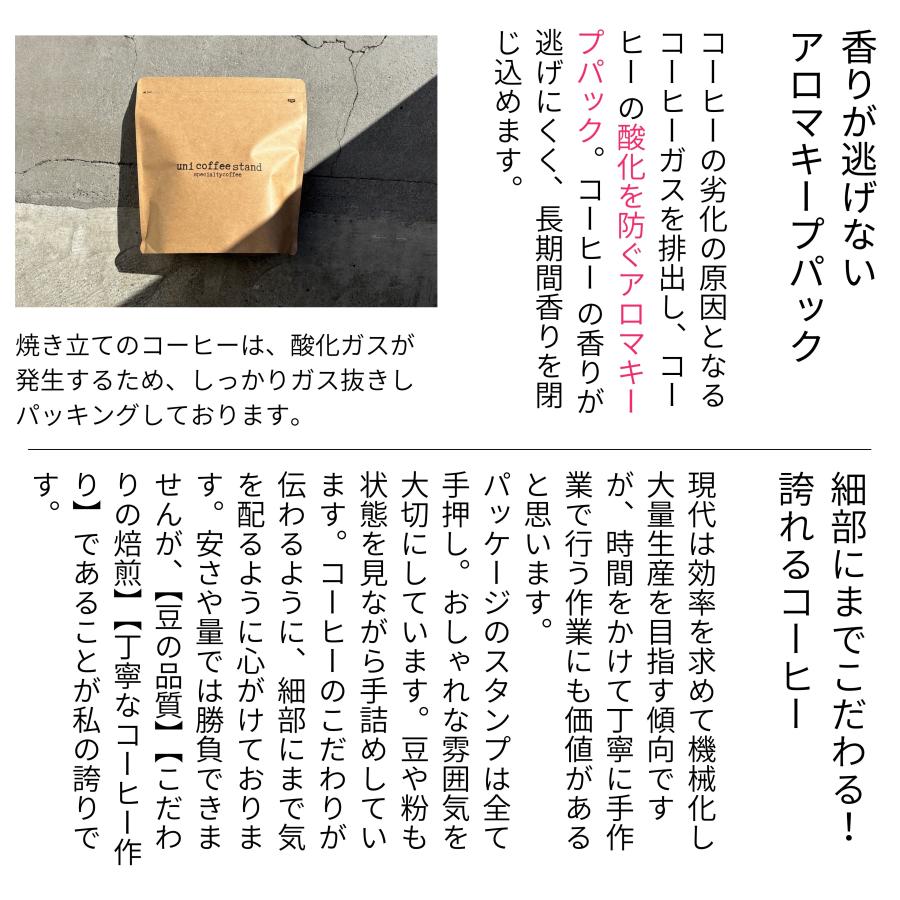 香りが逃げない
アロマキープパック
コーヒーの劣化の原因となる
コーヒーガスを排出し、コー
ヒーの酸化を防ぐアロマキー
プパック。コーヒーの香りが
逃げにくく、長期間香りを閉
じ込めます。
uni coffee stand
specialtycoffee
焼き立てのコーヒーは、酸化ガスが
発生するため、しっかりガス抜きし
パッキングしております。
細部にまでこだわる！
誇れるコーヒー
現代は効率を求めて機械化し
大量生産を目指す傾向です
が、時間をかけて丁寧に手作
業で行う作業にも価値がある
と思います。
パッケージのスタンプは全て
手押し。おしゃれな雰囲気を
大切にしています。豆や粉も
状態を見ながら手詰めしてい
ます。コーヒーのこだわりが
伝わるように、細部にまで気
を配るように心がけておりま
す。安さや量では勝負できま
せんが、【豆の品質】【こだわ
りの焙煎】【丁寧なコーヒー作
り】であることが私の誇りで
す。